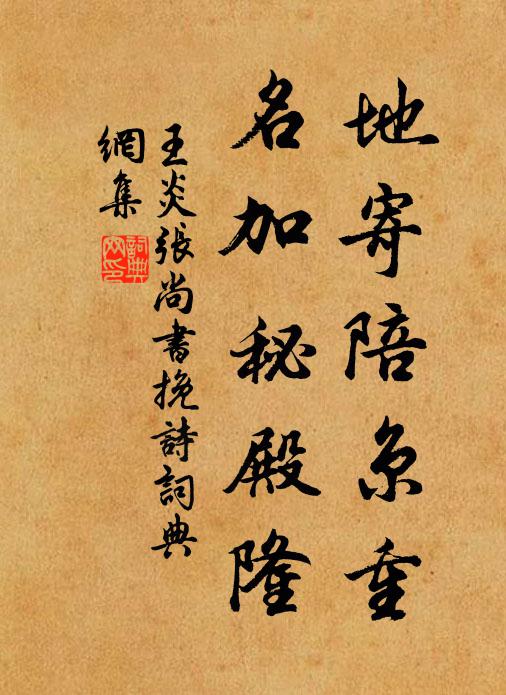 地寄陪京重
名加秘殿隆
王炎張尚書挽詩詞典
網集
詞典
网印